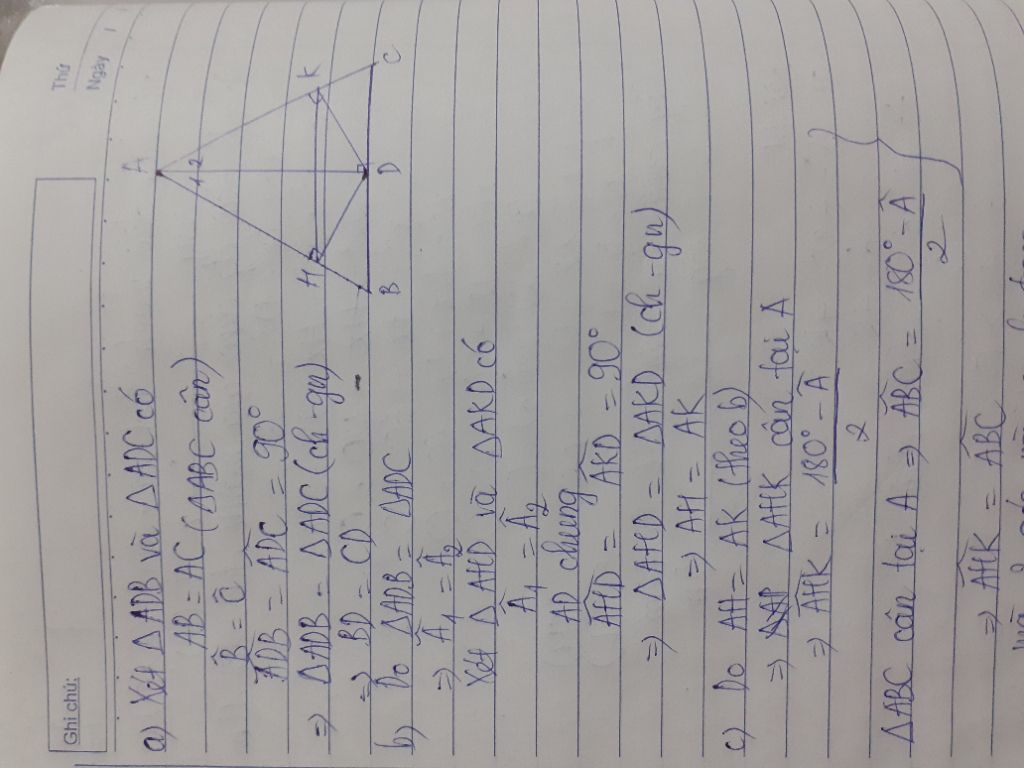 Thứ
Ngày
Ghi chú:
A
1 2
H
K
B
D
C
a) Xét ΔADB và ΔADC có
AB = AC (ΔABC cân)
B̂ = Ĉ
ADB̂ = ADĈ = 90°
⇒ ΔADB = ΔADC (ch-gn)
⇒ BD = CD
b) Do ΔADB = ΔADC
⇒ Â1 = Â2
Xét ΔAHD và ΔAKD có
Â1 = Â2
AD chung
AHD̂ = AKD̂ = 90°
⇒ ΔAHD = ΔAKD (ch-gn)
⇒ AH = AK
c) Do AH = AK (theo b)
⇒ ΔAHK cân tại A
⇒ AHK̂ = (180° - Â)/2
ΔABC cân tại A ⇒ ABĈ = (180° - Â)/2
⇒ AHK̂ = ABĈ
mà